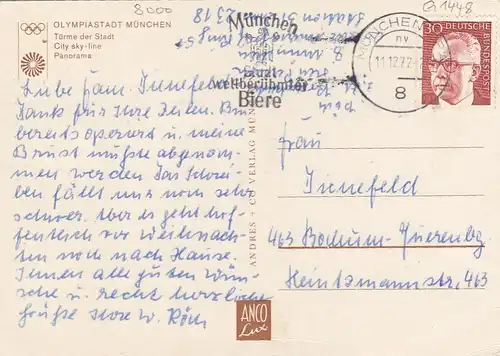 8000
G 1448
OLYMPIASTADT MÜNCHEN
Türme der Stadt
City sky-line
Panorama
München
Stadt
weltberühmter
Biere
MÜNCHEN
nv
11.12.72
8
30
DEUTSCHE BUNDESPOST
Liebe Fam.
Dank für Ihre Zeilen. Bin
bereits operiert u. meine
Brust mußte abgenom-
men werden Das Schrei-
ben fällt mir noch sehr
schwer. Aber es geht hof-
fentlich vor Weihnach-
ten noch nach Hause.
Ihnen alle guten Wün-
sche u. recht herzliche
Grüße Ihre W.
ANDRES + CO VERLAG
ANCO
Lux
Frau
463 Bochum-Querenburg
Heintzmannstr, 463